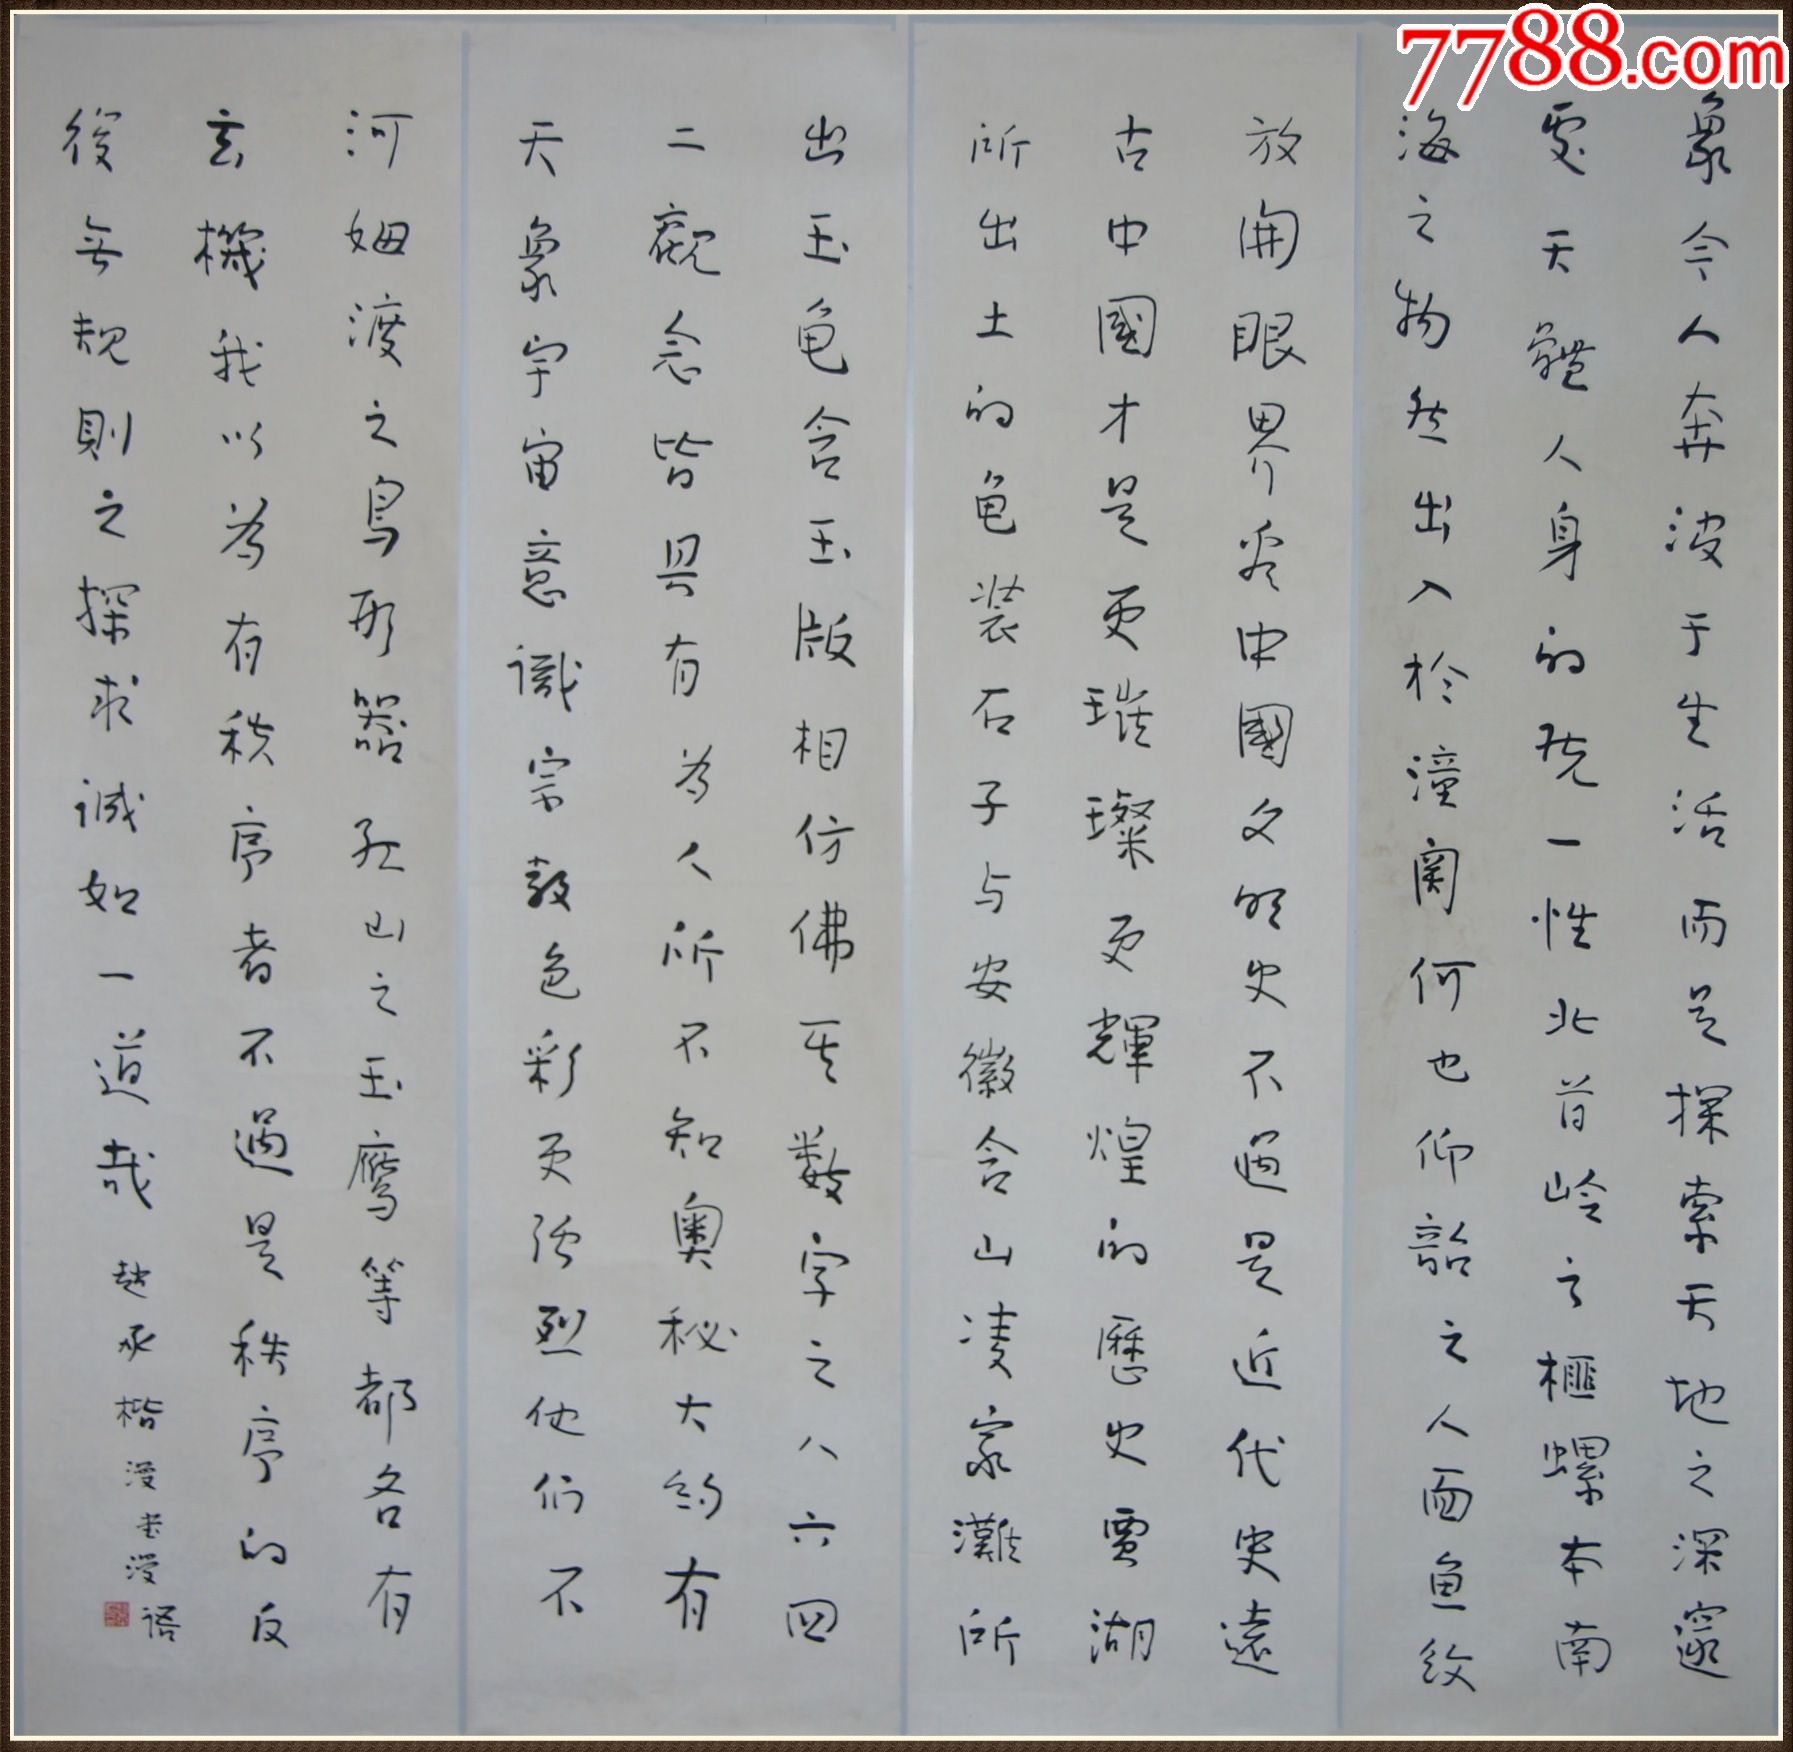 7788.com
象今人奔波于生活而是探索天地之深邃
更天體人身的統一性北首岭之榧螺本南
海之物然出入於潼関何也仰韶之人面鱼紋
放開眼界看中國文明史不過是近代史遠
古中國才是更璀璨更輝煌的歷史賈湖
所出土的龟装石子与安徽含山凌家灘所
出玉龟含玉版相仿佛其数字之八六四
二觀念皆具有為人所不知奥秘大約有
天象宇宙意識宗教色彩更强烈他们不
河姆渡之鳥形器孔山之玉鹰等都各有
玄機我以為有秩序者不過是秩序的反
後無規則之探求誠如一道哉
趙承楷漫書漫語